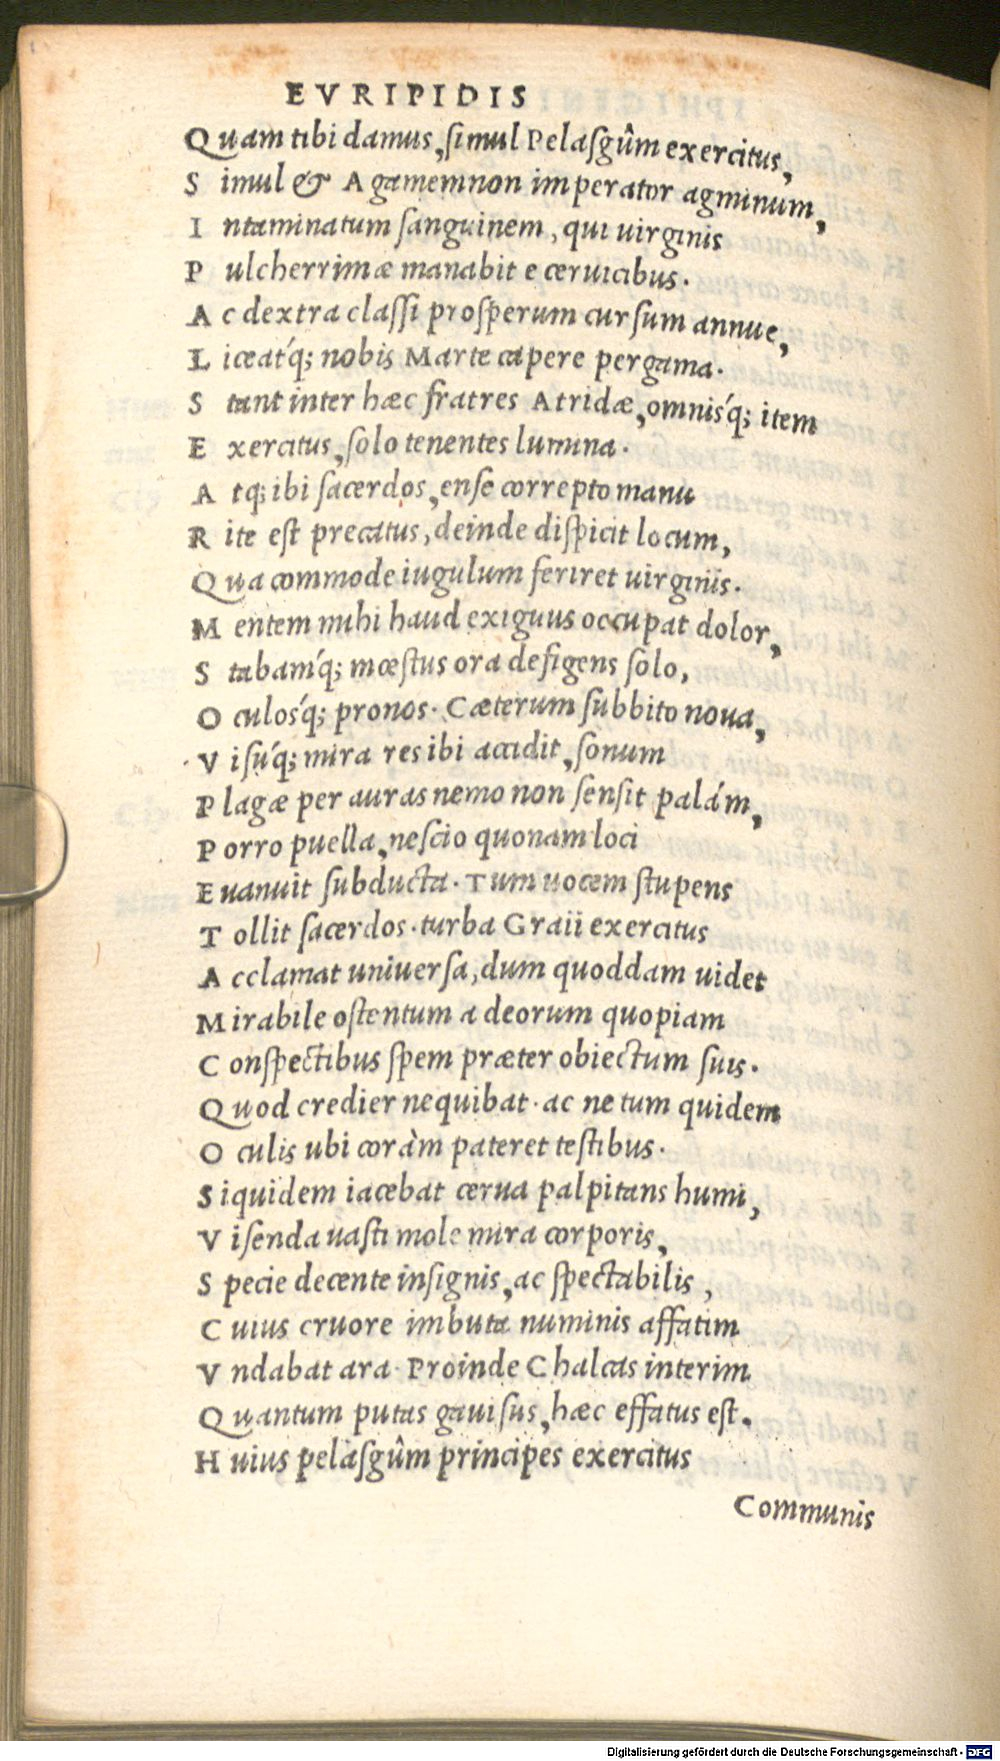 EVRIPIDIS
Quam tibi damus, simul Pelasgûm exercitus,
Simul & Agamemnon imperator agminum,
Intaminatum sanguinem, qui uirginis
Pulcherrimæ manabit e ceruicibus.
Ac dextra classi prosperum cursum annue,
Liceat́q; nobis Marte capere pergama.
Stant inter hæc fratres Atridæ, omniśq; item
Exercitus, solo tenentes lumina.
Atq; ibi sacerdos, ense correpto manu
Rite est precatus, deinde dispicit locum,
Qua commode iugulum feriret uirginis.
Mentem mihi haud exiguus occupat dolor,
Stabaḿq; mœstus ora defigens solo,
Oculośq; pronos. Cæterum subbito noua,
Visúq; mira res ibi accidit, sonum
Plagæ per auras nemo non sensit palám,
Porro puella, nescio quonam loci
Euanuit subducta. Tum uocem stupens
Tollit sacerdos. turba Graii exercitus
Acclamat uniuersa, dum quoddam uidet
Mirabile ostentum a deorum quopiam
Conspectibus spem præter obiectum suis.
Quod credier nequibat. ac ne tum quidem
Oculis ubi coràm pateret testibus.
Siquidem iacebat cerua palpitans humi,
Visenda uasti mole mira corporis,
Specie decente insignis, ac spectabilis,
Cuius cruore imbuta numinis affatim
Vndabat ara. Proinde Chalcas interim
Quantum putas gauisus, hæc effatus est.
Huius pelasgûm principes exercitus
Communis
Digitalisierung gefördert durch die Deutsche Forschungsgemeinschaft - DFG